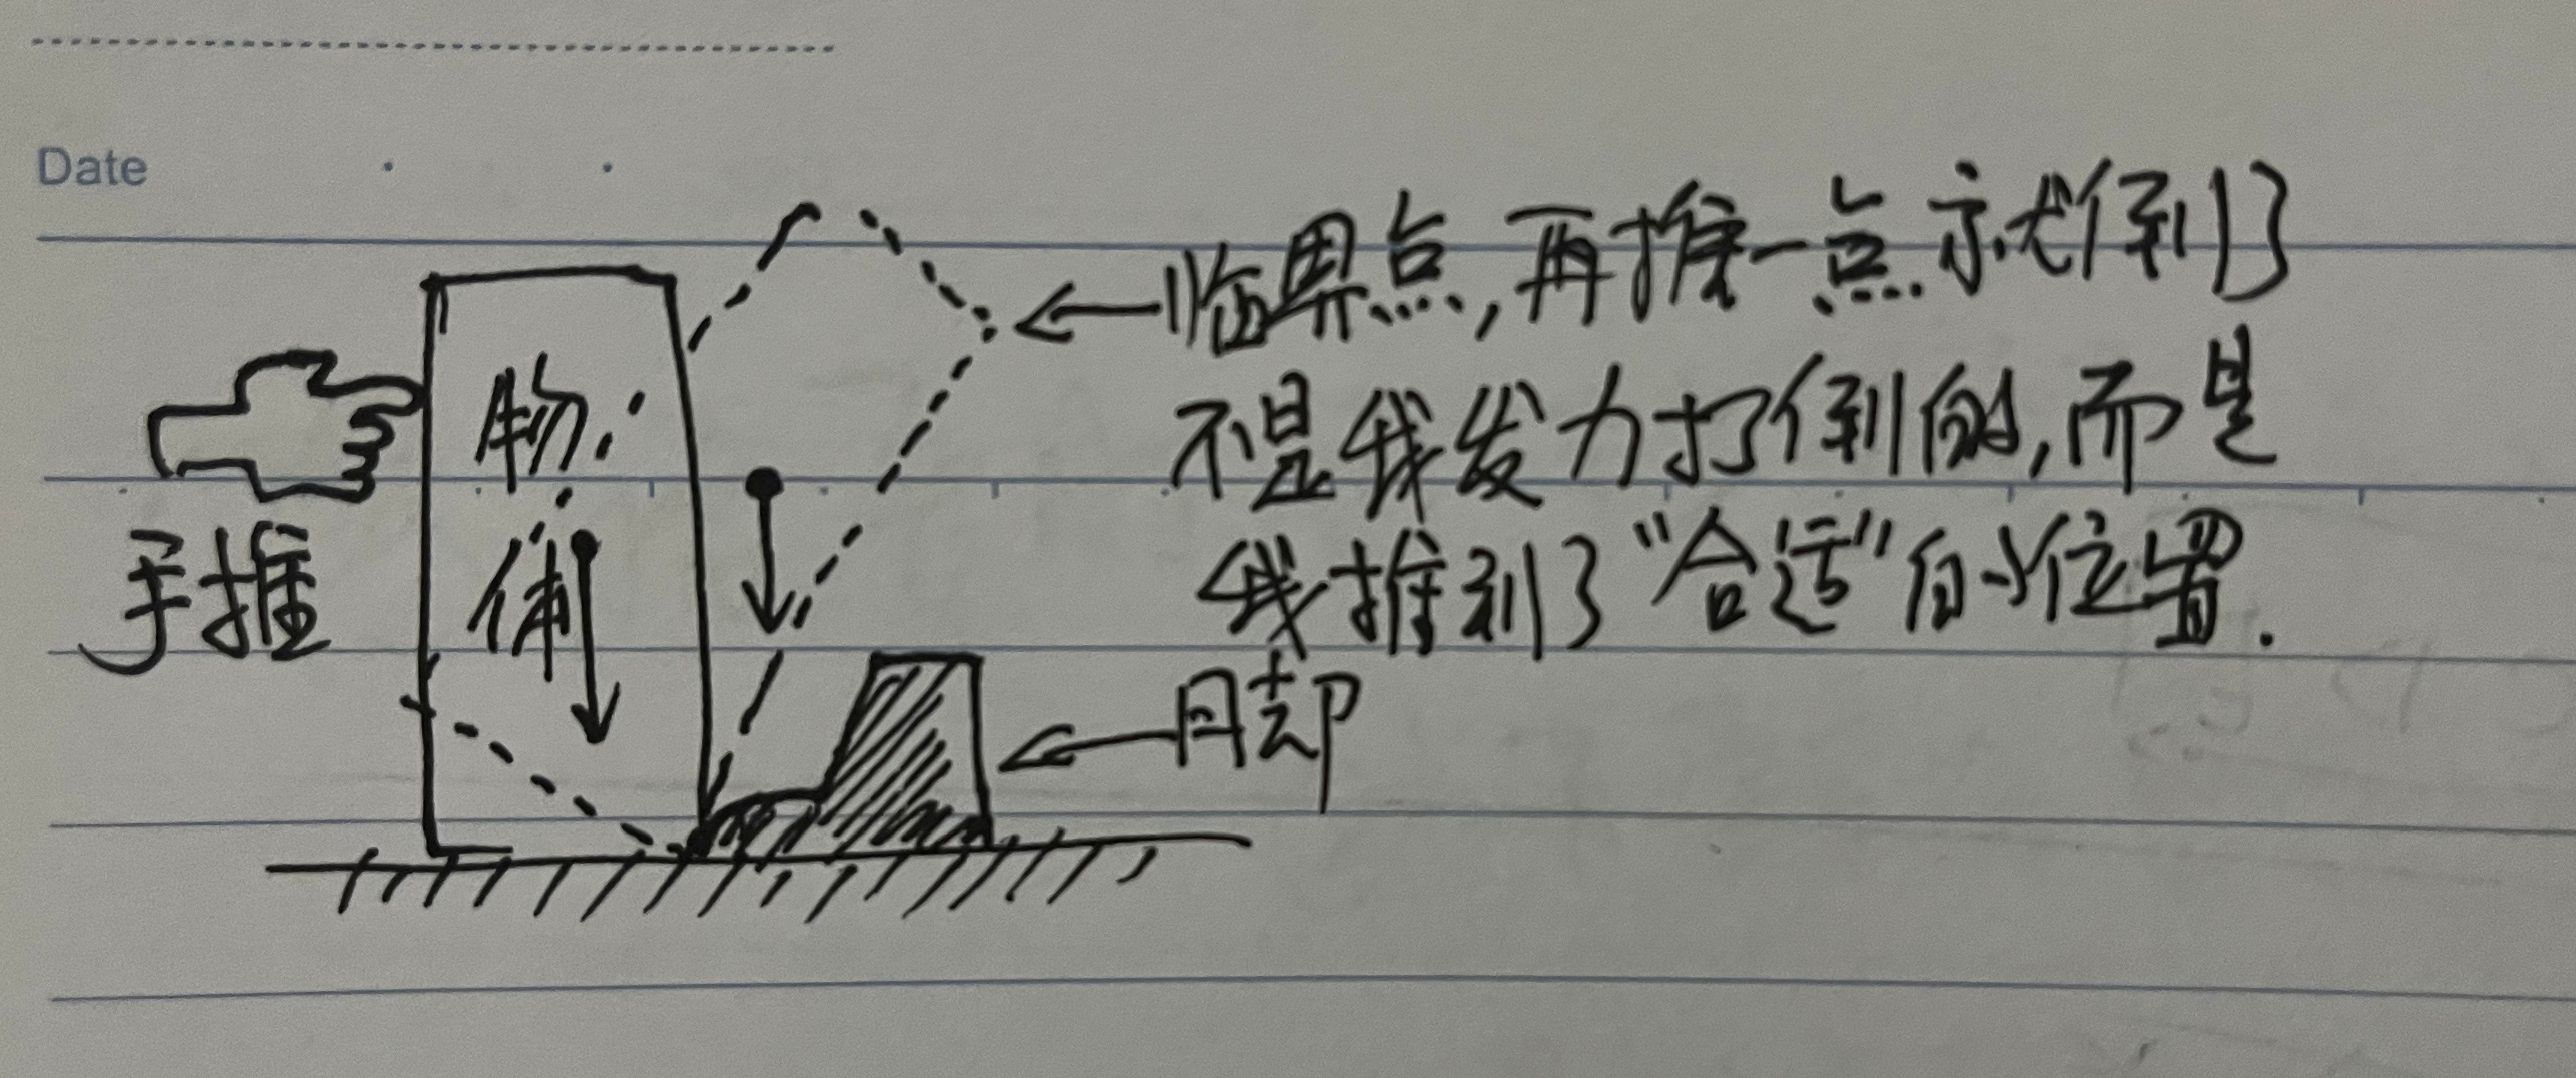 Date
临界点,再推一点就倒了
不是我发力打倒的,而是
我推到了“合适”的位置.
物体
手推
月却